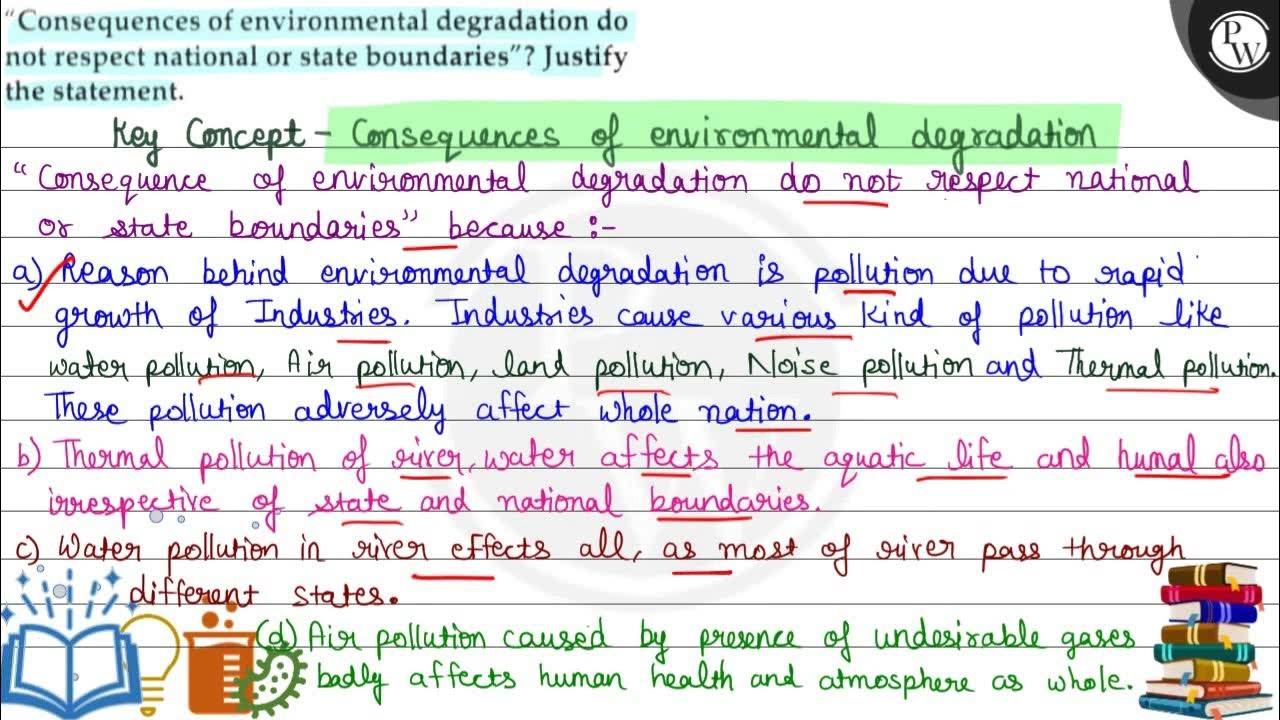 "Consequences of environmental degradation do
not respect national or state boundaries"? Justify
the statement.
PW
Key Concept - Consequences of environmental degradation
"Consequence of environmental degradation do not respect national
or state boundaries" because :-
a) Reason behind environmental degradation is pollution due to rapid
growth of Industries. Industries cause various kind of pollution like
water pollution, Air pollution, land pollution, Noise pollution and Thermal pollution.
These pollution adversely affect whole nation.
b) Thermal pollution of river, water affects the aquatic life and humal also
irrespective of state and national boundaries.
c) Water pollution in river effects all, as most of river pass through
different states.
(d) Air pollution caused by presence of undesirable gases
badly affects human health and atmosphere as whole.